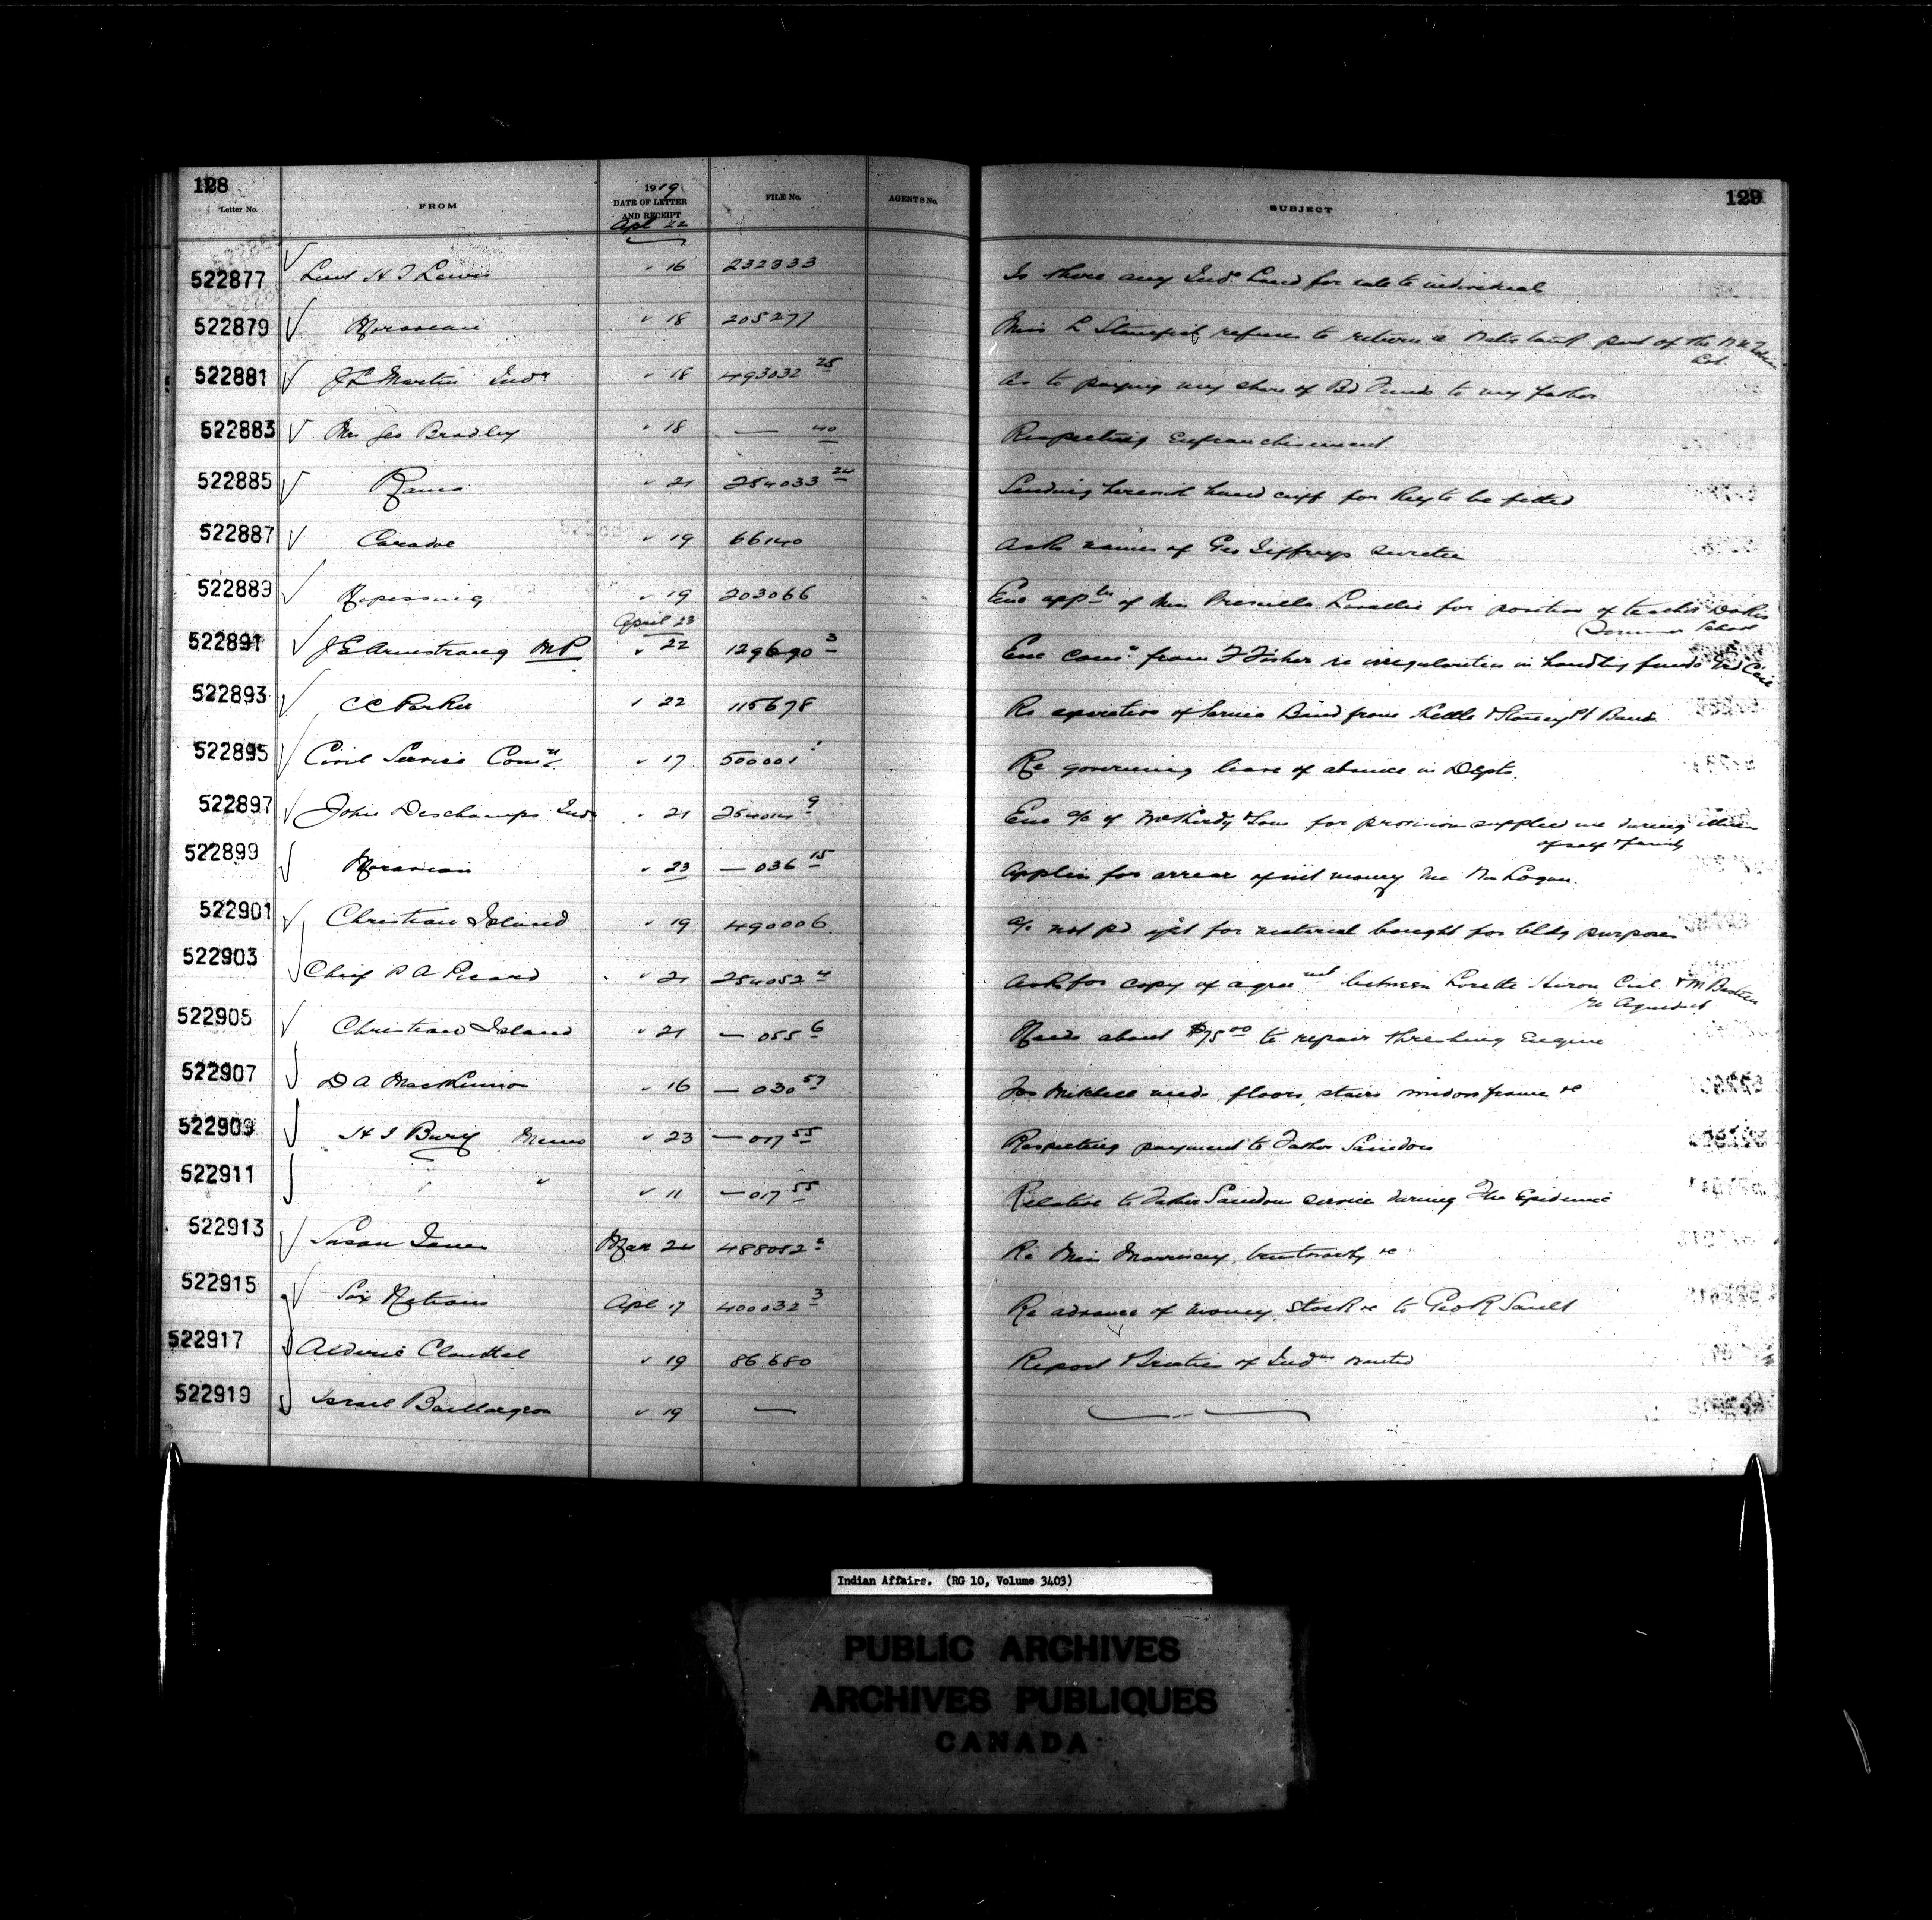 128
129
Letter No.
FROM
1919
DATE OF LETTER
AND RECEIPT
FILE No.
AGENTS No.
SUBJECT
Apl 22
522877 Lieut H J Lewis " 16 232333 Is there any Ind. Land for sale to individual
522879 Moravian " 18 205277 Miss L refuses to return a part of the
522881 J L Martin Ind " 18 493032 25 As to paying my share of Bd Funds to my father
522883 Mrs Geo Bradley " 18 — 40 Respecting Enfranchisement
522885 Rama " 21 254033 24 Sending herewith hand cuff for Key to be fitted
522887 Caradoc " 19 66140 Asks names of Geo Jeffreys sureties
522889 Nipissing " 19 203066 Enc appln of Miss for position of teacher Dokis
Summer School
April 23
522891 J E Armstrong MP " 22 129690 3 Enc comn from F Fisher re irregularities in handling funds
522893 C C Parker " 22 115678 Re separation of Sarnia Band from Kettle & Stoney Pt Band
522895 Civil Service Comn " 17 500001 1 Re governing leave of absence in Depts.
522897 John Deschamps Ind " 21 254014 9 Enc a/c of & Sons for provision supplied me during illness
of self & family
522899 Moravian " 23 — 036 15 Applies for arrear of int money Mrs Logan.
522901 Christian Island " 19 490006 a/c not pd yet for material bought for bldg purposes
522903 Chief P A Picard " 21 254052 4 Asks for copy of agreement between Lorette Huron Cncl & M
re Aqueduct
522905 Christian Island " 21 — 055 6 Needs about $75.00 to repair threshing Engine
522907 D A MacKinnon " 16 — 030 57 Jos Mitchell needs floors, stairs window frame &c
522909 H J Bury Memo " 23 — 017 55 Respecting payment to Father
522911 " " " 11 — 017 55 Relative to Father service during The Epidemic
522913 Susan Mar 24 488052 2 Re Miss Morrissey, &c
522915 Six Nations Apl 17 400032 3 Re advance of money, stock &c to Geo R Sault
522917 Alderic " 19 86680 Report & Treaties of Indns wanted
522919 Israel Baillargeon " 19 — — " —
Indian Affairs. (RG 10, Volume 3403)
PUBLIC ARCHIVES
ARCHIVES PUBLIQUES
CANADA